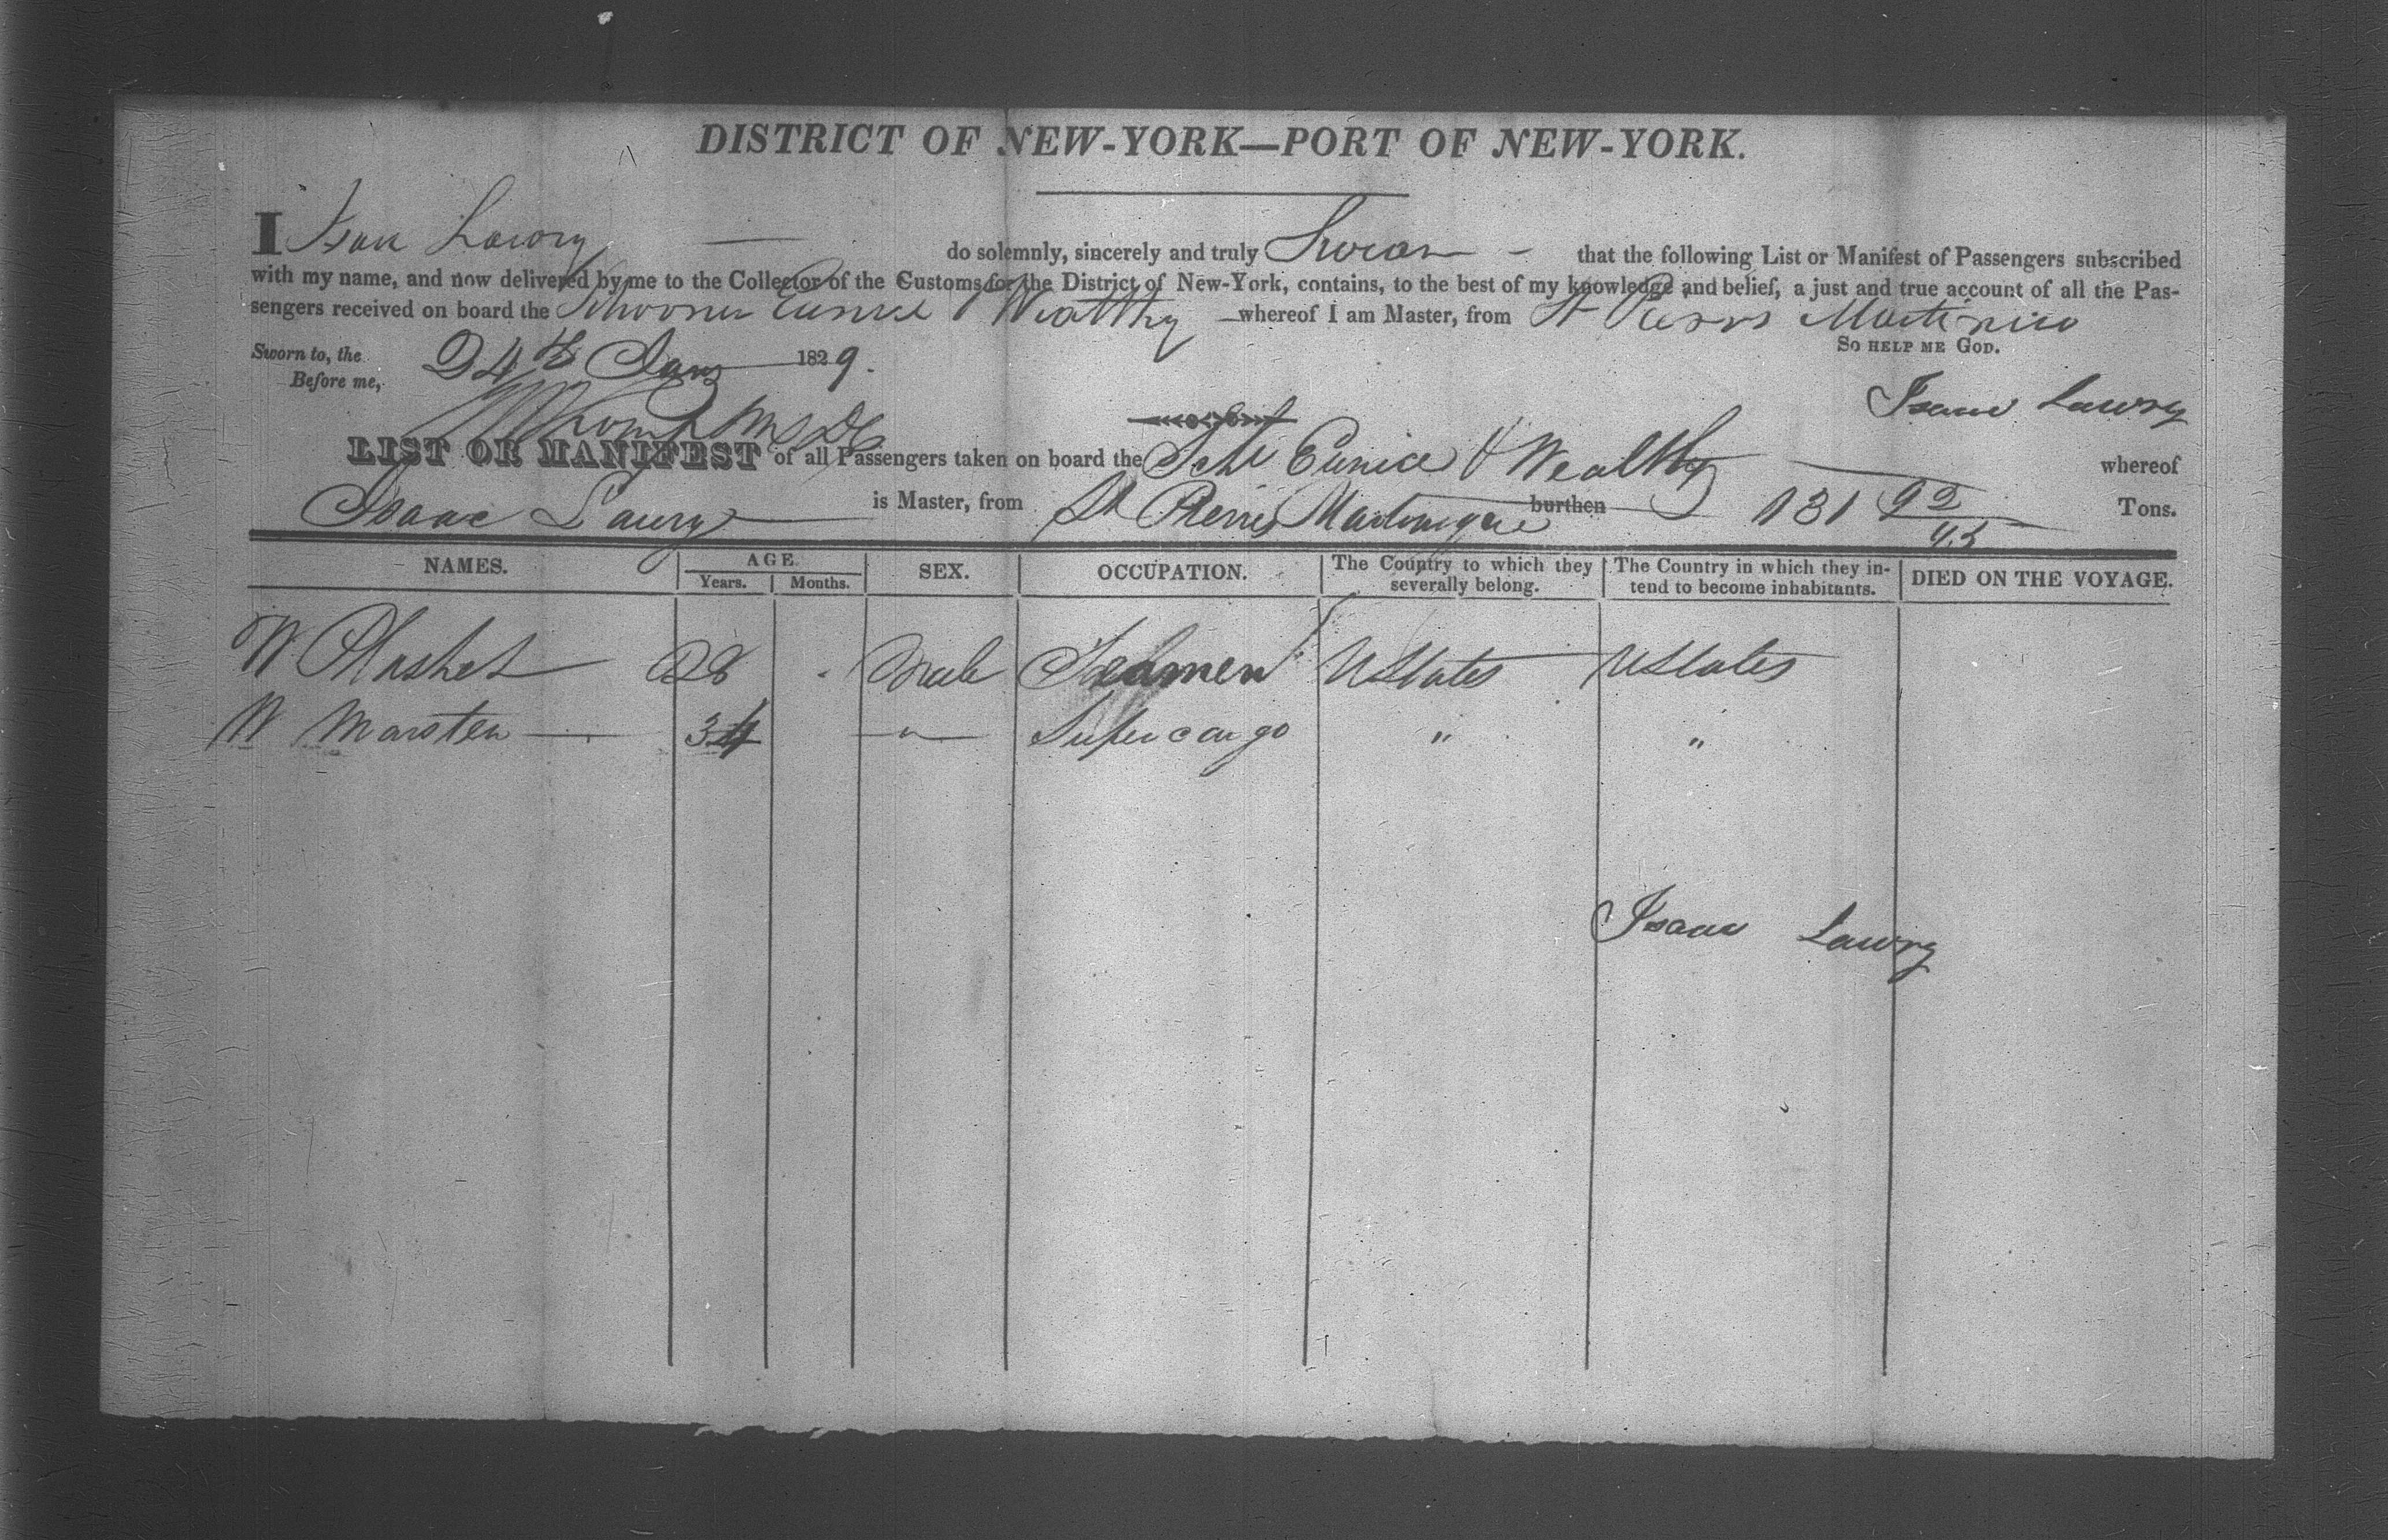 DISTRICT OF NEW-YORK—PORT OF NEW-YORK.
I Isaac Lawry do solemnly, sincerely and truly Swear that the following List or Manifest of Passengers subscribed
with my name, and now delivered by me to the Collector of the Customs for the District of New-York, contains, to the best of my knowledge and belief, a just and true account of all the Pas-
sengers received on board the Schooner Eunice & Wealthy whereof I am Master, from St Pierrs Martinico
So HELP ME GOD.
Sworn to, the 24th Jany 1829.
Before me,
Isaac Lawry
LIST OR MANIFEST of all Passengers taken on board the Schr Eunice & Wealthy whereof
Isaac Laury is Master, from St Pierres Martinique burthen 131 92/95 Tons.
NAMES. AGE. SEX. OCCUPATION. The Country to which they severally belong. The Country in which they in-tend to become inhabitants. DIED ON THE VOYAGE.
Years. Months.
W 28 Male Seamen UStates UStates
W Marsten 34 " Supercargo " "
Isaac Lawry